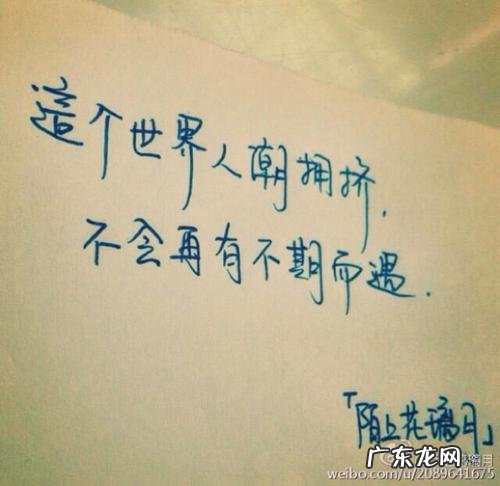 這个世界人潮拥挤.
不会再有不期而遇.
「陌上花璃月」
广东龙网
weibo.com/u/2089641675